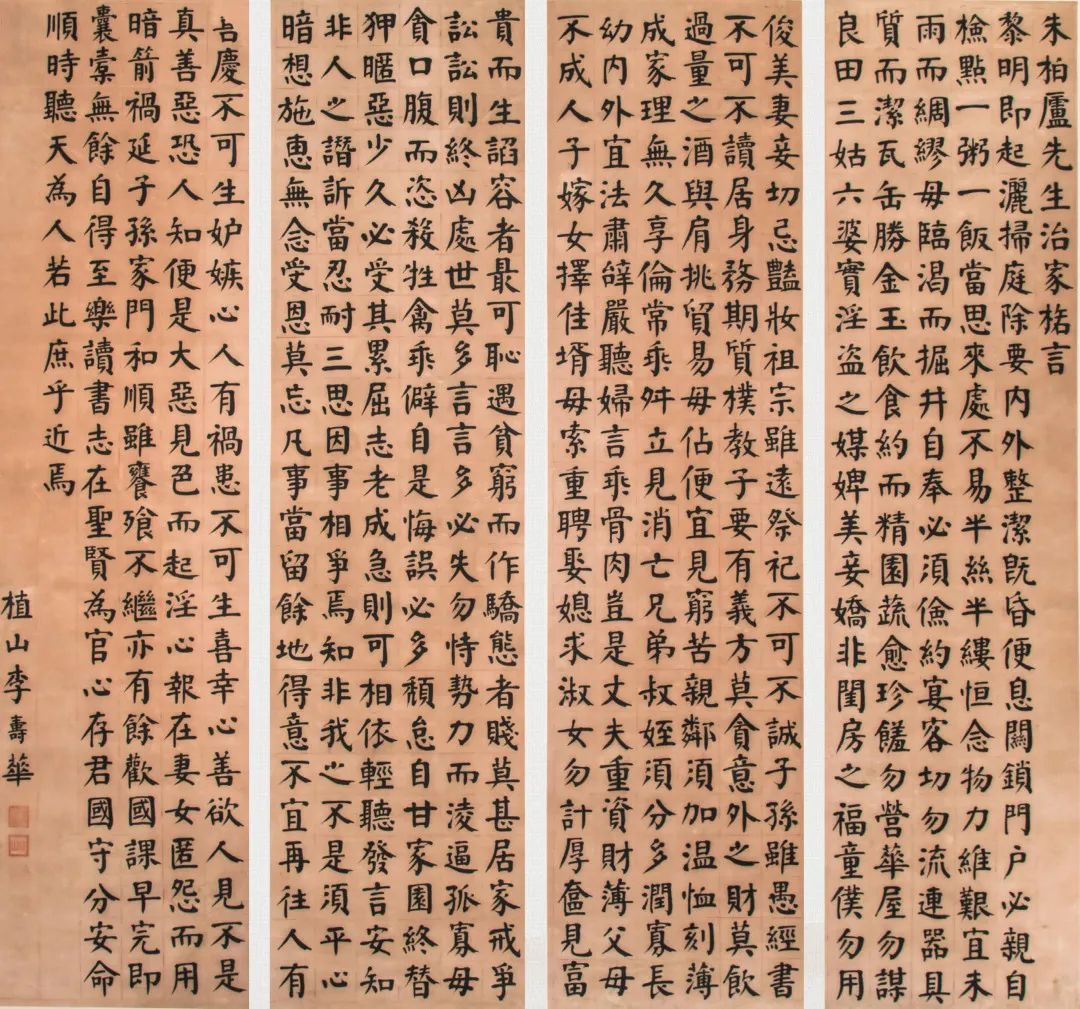 朱柏廬先生治家格言
黎明即起灑掃庭除要内外整潔既昏便息關鎖門户必親自
檢點一粥一飯當思來處不易半絲半縷恒念物力維艱宜未
雨而綢繆毋臨渴而掘井自奉必須儉約宴客切勿流連器具
質而潔瓦缶勝金玉飲食約而精園蔬愈珍饈勿營華屋勿謀
良田三姑六婆實淫盗之媒婢美妾嬌非閨房之福童僕勿用
俊美妻妾切忌豔妝祖宗雖遠祭祀不可不誠子孫雖愚經書
不可不讀居身務期質樸教子要有義方莫貪意外之財莫飲
過量之酒與肩挑貿易毋佔便宜見窮苦親鄰須加温恤刻薄
成家理無久享倫常乖舛立見消亡兄弟叔姪須分多潤寡長
幼内外宜法肅辭嚴聽婦言乖骨肉豈是丈夫重資財薄父母
不成人子嫁女擇佳壻毋索重聘娶媳求淑女勿計厚奩見富
貴而生諂容者最可恥遇貧窮而作驕態者賤莫甚居家戒爭
訟訟則終凶處世莫多言言多必失勿恃勢力而淩逼孤寡毋
貪口腹而恣殺牲禽乖僻自是悔誤必多頹怠自甘家園終替
狎暱惡少久必受其累屈志老成急則可相依輕聽發言安知
非人之譖訴當忍耐三思因事相爭焉知非我之不是須平心
暗想施惠無念受恩莫忘凡事當留餘地得意不宜再往人有
喜慶不可生妒嫉心人有禍患不可生喜幸心善欲人見不是
真善惡恐人知便是大惡見色而起淫心報在妻女匿怨而用
暗箭禍延子孫家門和順雖饔飱不繼亦有餘歡國課早完即
囊橐無餘自得至樂讀書志在聖賢為官心存君國守分安命
順時聽天為人若此庶乎近焉
植山李壽華